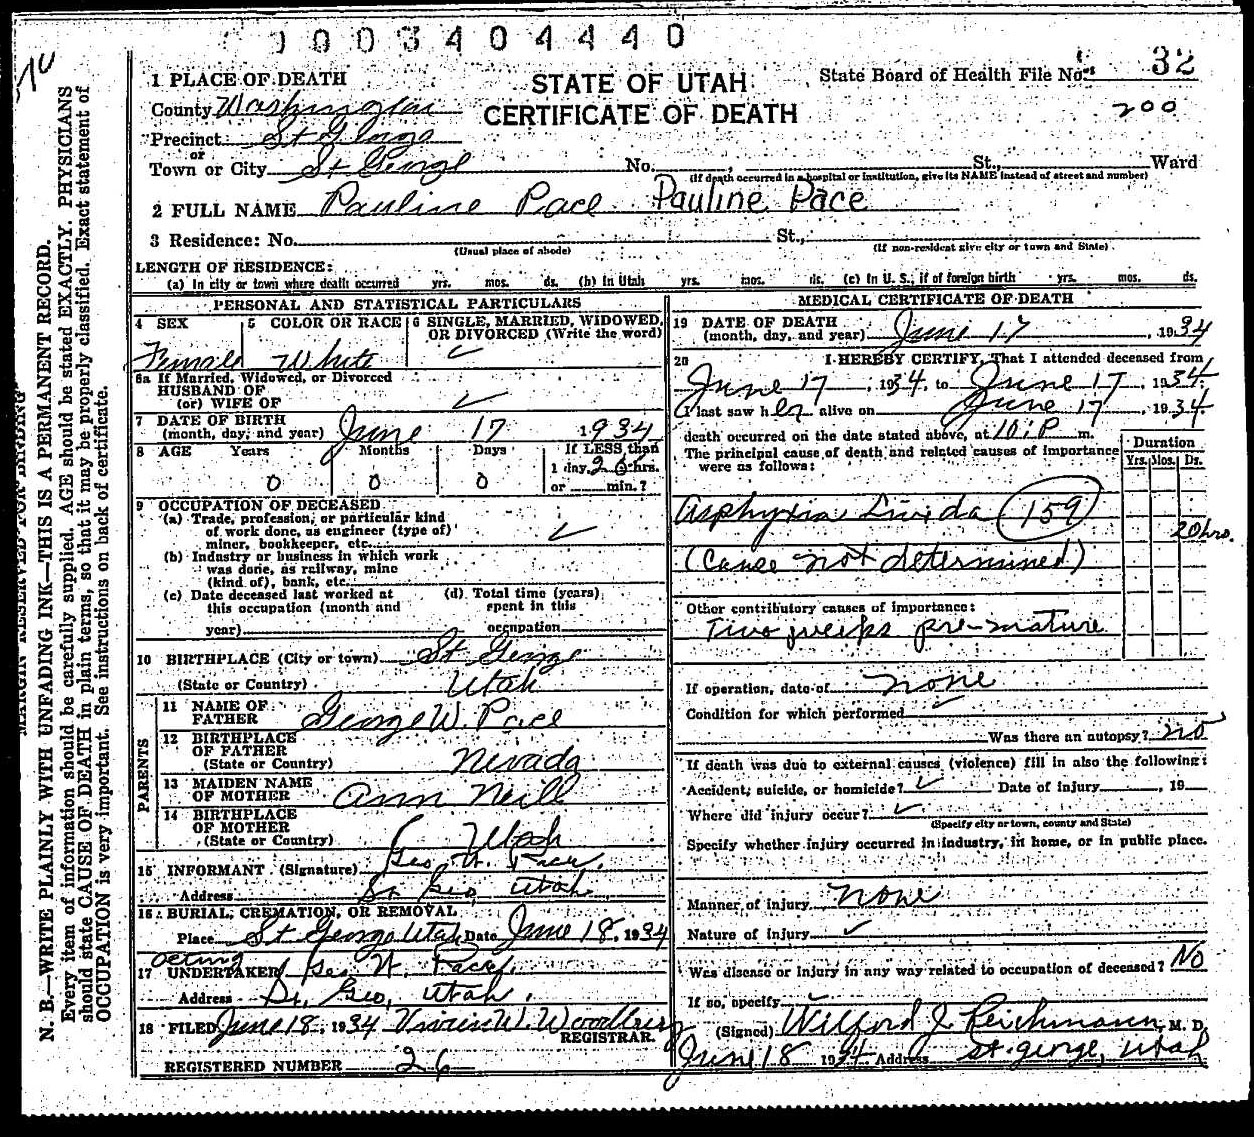 0003404440
32
1 PLACE OF DEATH
STATE OF UTAH
State Board of Health File No.
County Washington
CERTIFICATE OF DEATH
200
Precinct St George
or
Town or City St George No. , St., Ward
(If death occurred in a hospital or institution, give its NAME instead of street and number)
2 FULL NAME Pauline Pace Pauline Pace
3 Residence: No. St.,
(Usual place of abode) (If non-resident give city or town and State)
LENGTH OF RESIDENCE:
(a) In city or town where death occurred yrs. mos. ds. (b) In Utah yrs. mos. ds. (c) In U. S., if of foreign birth yrs. mos. ds.
PERSONAL AND STATISTICAL PARTICULARS
4 SEX
Female
5 COLOR OR RACE
White
6 SINGLE, MARRIED, WIDOWED,
OR DIVORCED (Write the word)
6a If Married, Widowed, or Divorced
HUSBAND OF
(or) WIFE OF
7 DATE OF BIRTH
(month, day, and year) June 17 1934
8 AGE Years Months Days If LESS than
1 day, hrs.
0 0 0 or min.?
9 OCCUPATION OF DECEASED
(a) Trade, profession, or particular kind
of work done, as engineer (type of)
miner, bookkeeper, etc.
(b) Industry or business in which work
was done, as railway, mine
(kind of), bank, etc.
(c) Date deceased last worked at
this occupation (month and
year)
(d) Total time (years)
spent in this
occupation
10 BIRTHPLACE (City or town) St George
(State or Country) Utah
PARENTS
11 NAME OF
FATHER George W. Pace
12 BIRTHPLACE
OF FATHER
(State or Country) Nevada
13 MAIDEN NAME
OF MOTHER Ann Neill
14 BIRTHPLACE
OF MOTHER
(State or Country) Utah
15 INFORMANT (Signature) Geo. W. Pace.
Address St Geo, Utah.
16 BURIAL, CREMATION, OR REMOVAL
Place St George Utah Date June 18, 1934
acting
17 UNDERTAKER Geo W. Pace.
Address St, Geo, Utah.
18 FILED June 18, 1934 Vivien W. Woodbury
REGISTRAR.
REGISTERED NUMBER 26
MEDICAL CERTIFICATE OF DEATH
19 DATE OF DEATH
(month, day, and year) June 17, 1934
20 I HEREBY CERTIFY, That I attended deceased from
June 17, 1934, to June 17, 1934.
I last saw her alive on June 17, 1934.
death occurred on the date stated above, at 10:P m.
The principal cause of death and related causes of importance
were as follows:
Duration
Yrs. Mos. Ds.
Asphyxia Livida 159
20 hrs.
(Cause not determined)
Other contributory causes of importance:
Two weeks pre-mature
If operation, date of none
Condition for which performed
Was there an autopsy? no
If death was due to external causes (violence) fill in also the following:
Accident, suicide, or homicide? Date of injury , 19
Where did injury occur?
(Specify city or town, county and State)
Specify whether injury occurred in industry, in home, or in public place.
Manner of injury none
Nature of injury
Was disease or injury in any way related to occupation of deceased? No
If so, specify
(Signed) Wilford J. Reichmann, M. D.
June 18 1934 Address St. George, Utah
MARGIN RESERVED FOR BINDING
N. B.—WRITE PLAINLY WITH UNFADING INK—THIS IS A PERMANENT RECORD.
Every item of information should be carefully supplied. AGE should be stated EXACTLY. PHYSICIANS
should state CAUSE OF DEATH in plain terms, so that it may be properly classified. Exact statement of
OCCUPATION is very important. See instructions on back of certificate.